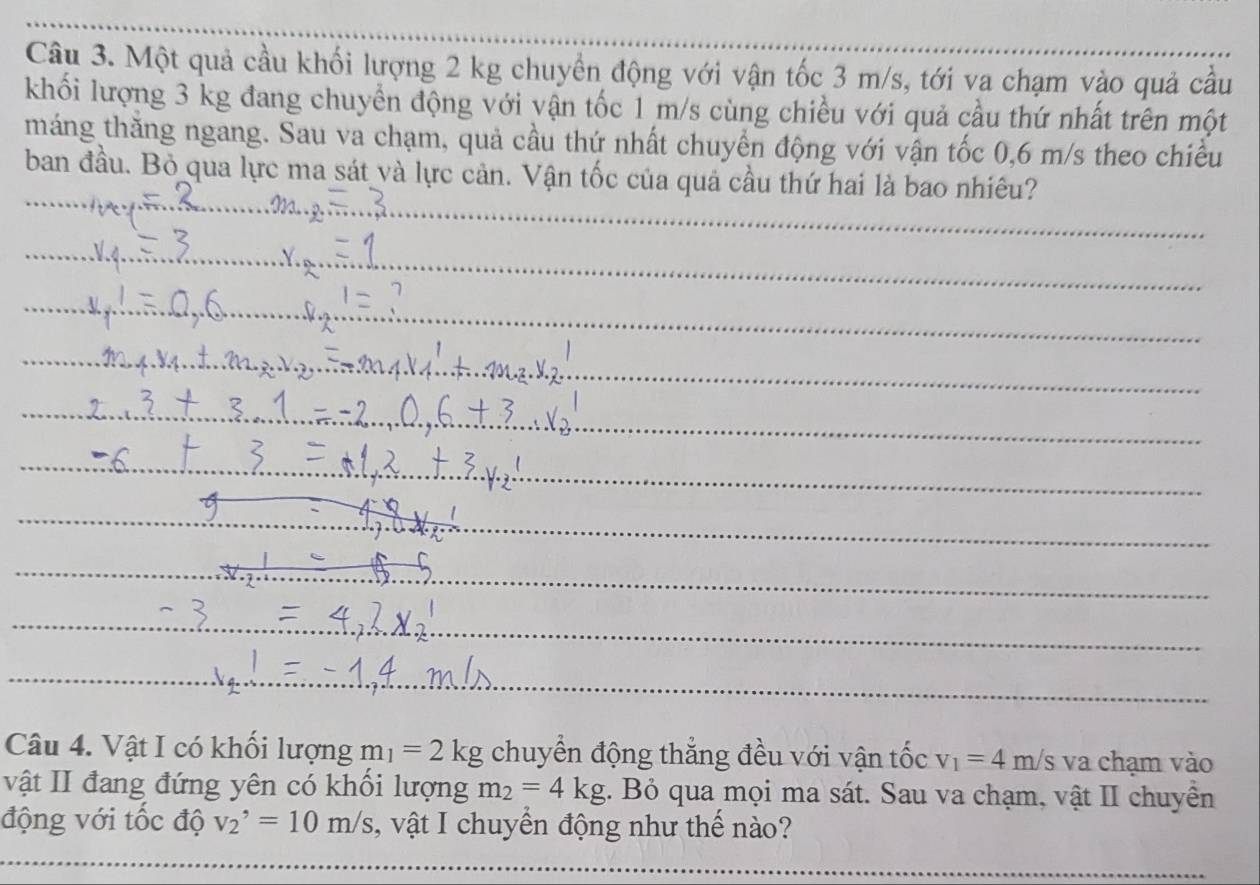 Câu 3. Một quả cầu khối lượng 2 kg chuyển động với vận tốc 3 m/s, tới va chạm vào quả cầu
khối lượng 3 kg đang chuyển động với vận tốc 1 m/s cùng chiều với quả cầu thứ nhất trên một
máng thẳng ngang. Sau va chạm, quả cầu thứ nhất chuyển động với vận tốc 0,6 m/s theo chiều
ban đầu. Bỏ qua lực ma sát và lực cản. Vận tốc của quả cầu thứ hai là bao nhiêu?
m₁ = 2 m₂ = 3
v₁ = 3 v₂ = 1
v₁' = 0,6 v₂' = ?
m₁.v₁ + m₂.v₂ = m₁.v₁' + m₂.v₂'
2.3 + 3.1 = -2.0,6 + 3.v₂'
-6 + 3 = 1,2 + 3v₂'
9 =
v₂' = 5
-3 = 4,2v₂'
v₂' = -1,4 m/s
Câu 4. Vật I có khối lượng m₁ = 2 kg chuyển động thẳng đều với vận tốc v₁ = 4 m/s va chạm vào
vật II đang đứng yên có khối lượng m₂ = 4 kg. Bỏ qua mọi ma sát. Sau va chạm, vật II chuyển
động với tốc độ v₂' = 10 m/s, vật I chuyển động như thế nào?